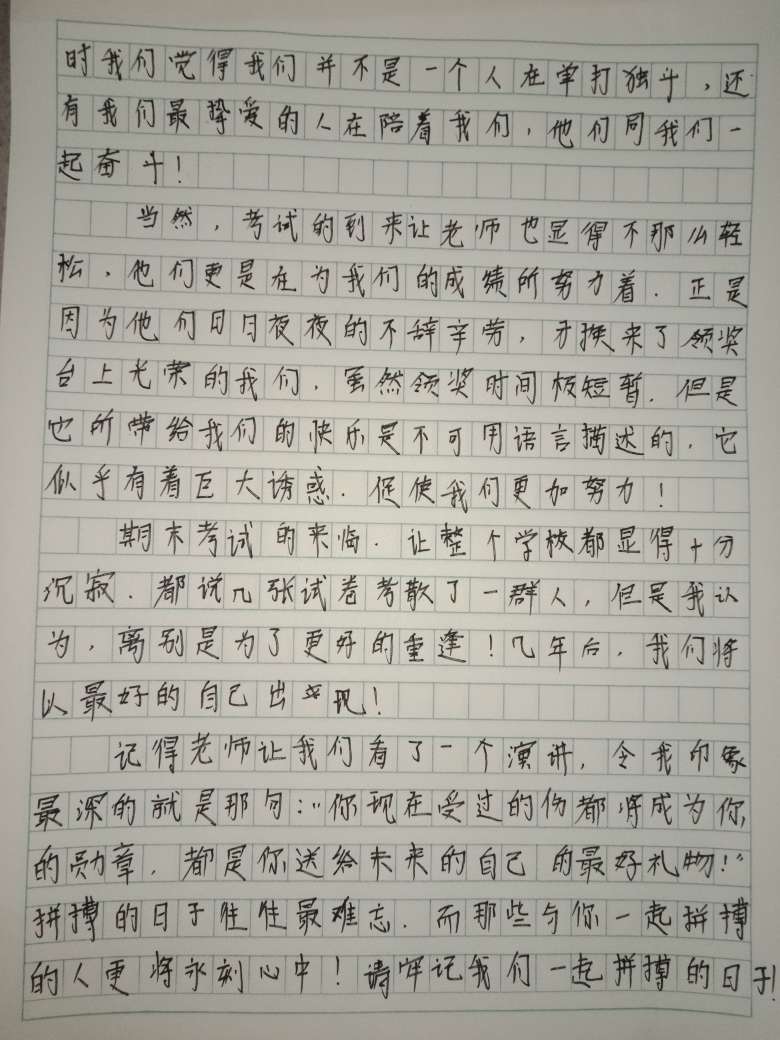 时我们觉得我们并不是一个人在单打独斗，还
有我们最挚爱的人在陪着我们，他们同我们一
起奋斗！
当然，考试的到来让老师也显得不那么轻
松，他们更是在为我们的成绩所努力着．正是
因为他们日日夜夜的不辞辛劳，才换来了领奖
台上光荣的我们．虽然领奖时间极短暂．但是
它所带给我们的快乐是不可用语言描述的．它
似乎有着巨大诱惑．促使我们更加努力！
期末考试的来临．让整个学校都显得十分
沉寂．都说几张试卷考散了一群人，但是我认
为，离别是为了更好的重逢！几年后，我们将
以最好的自己出现！
记得老师让我们看了一个演讲，令我印象
最深的就是那句：“你现在受过的伤都将成为你
的勋章．都是你送给未来的自己的最好礼物！”
拼搏的日子往往最难忘．而那些与你一起拼搏
的人更将永刻心中！请牢记我们一起拼搏的日子！